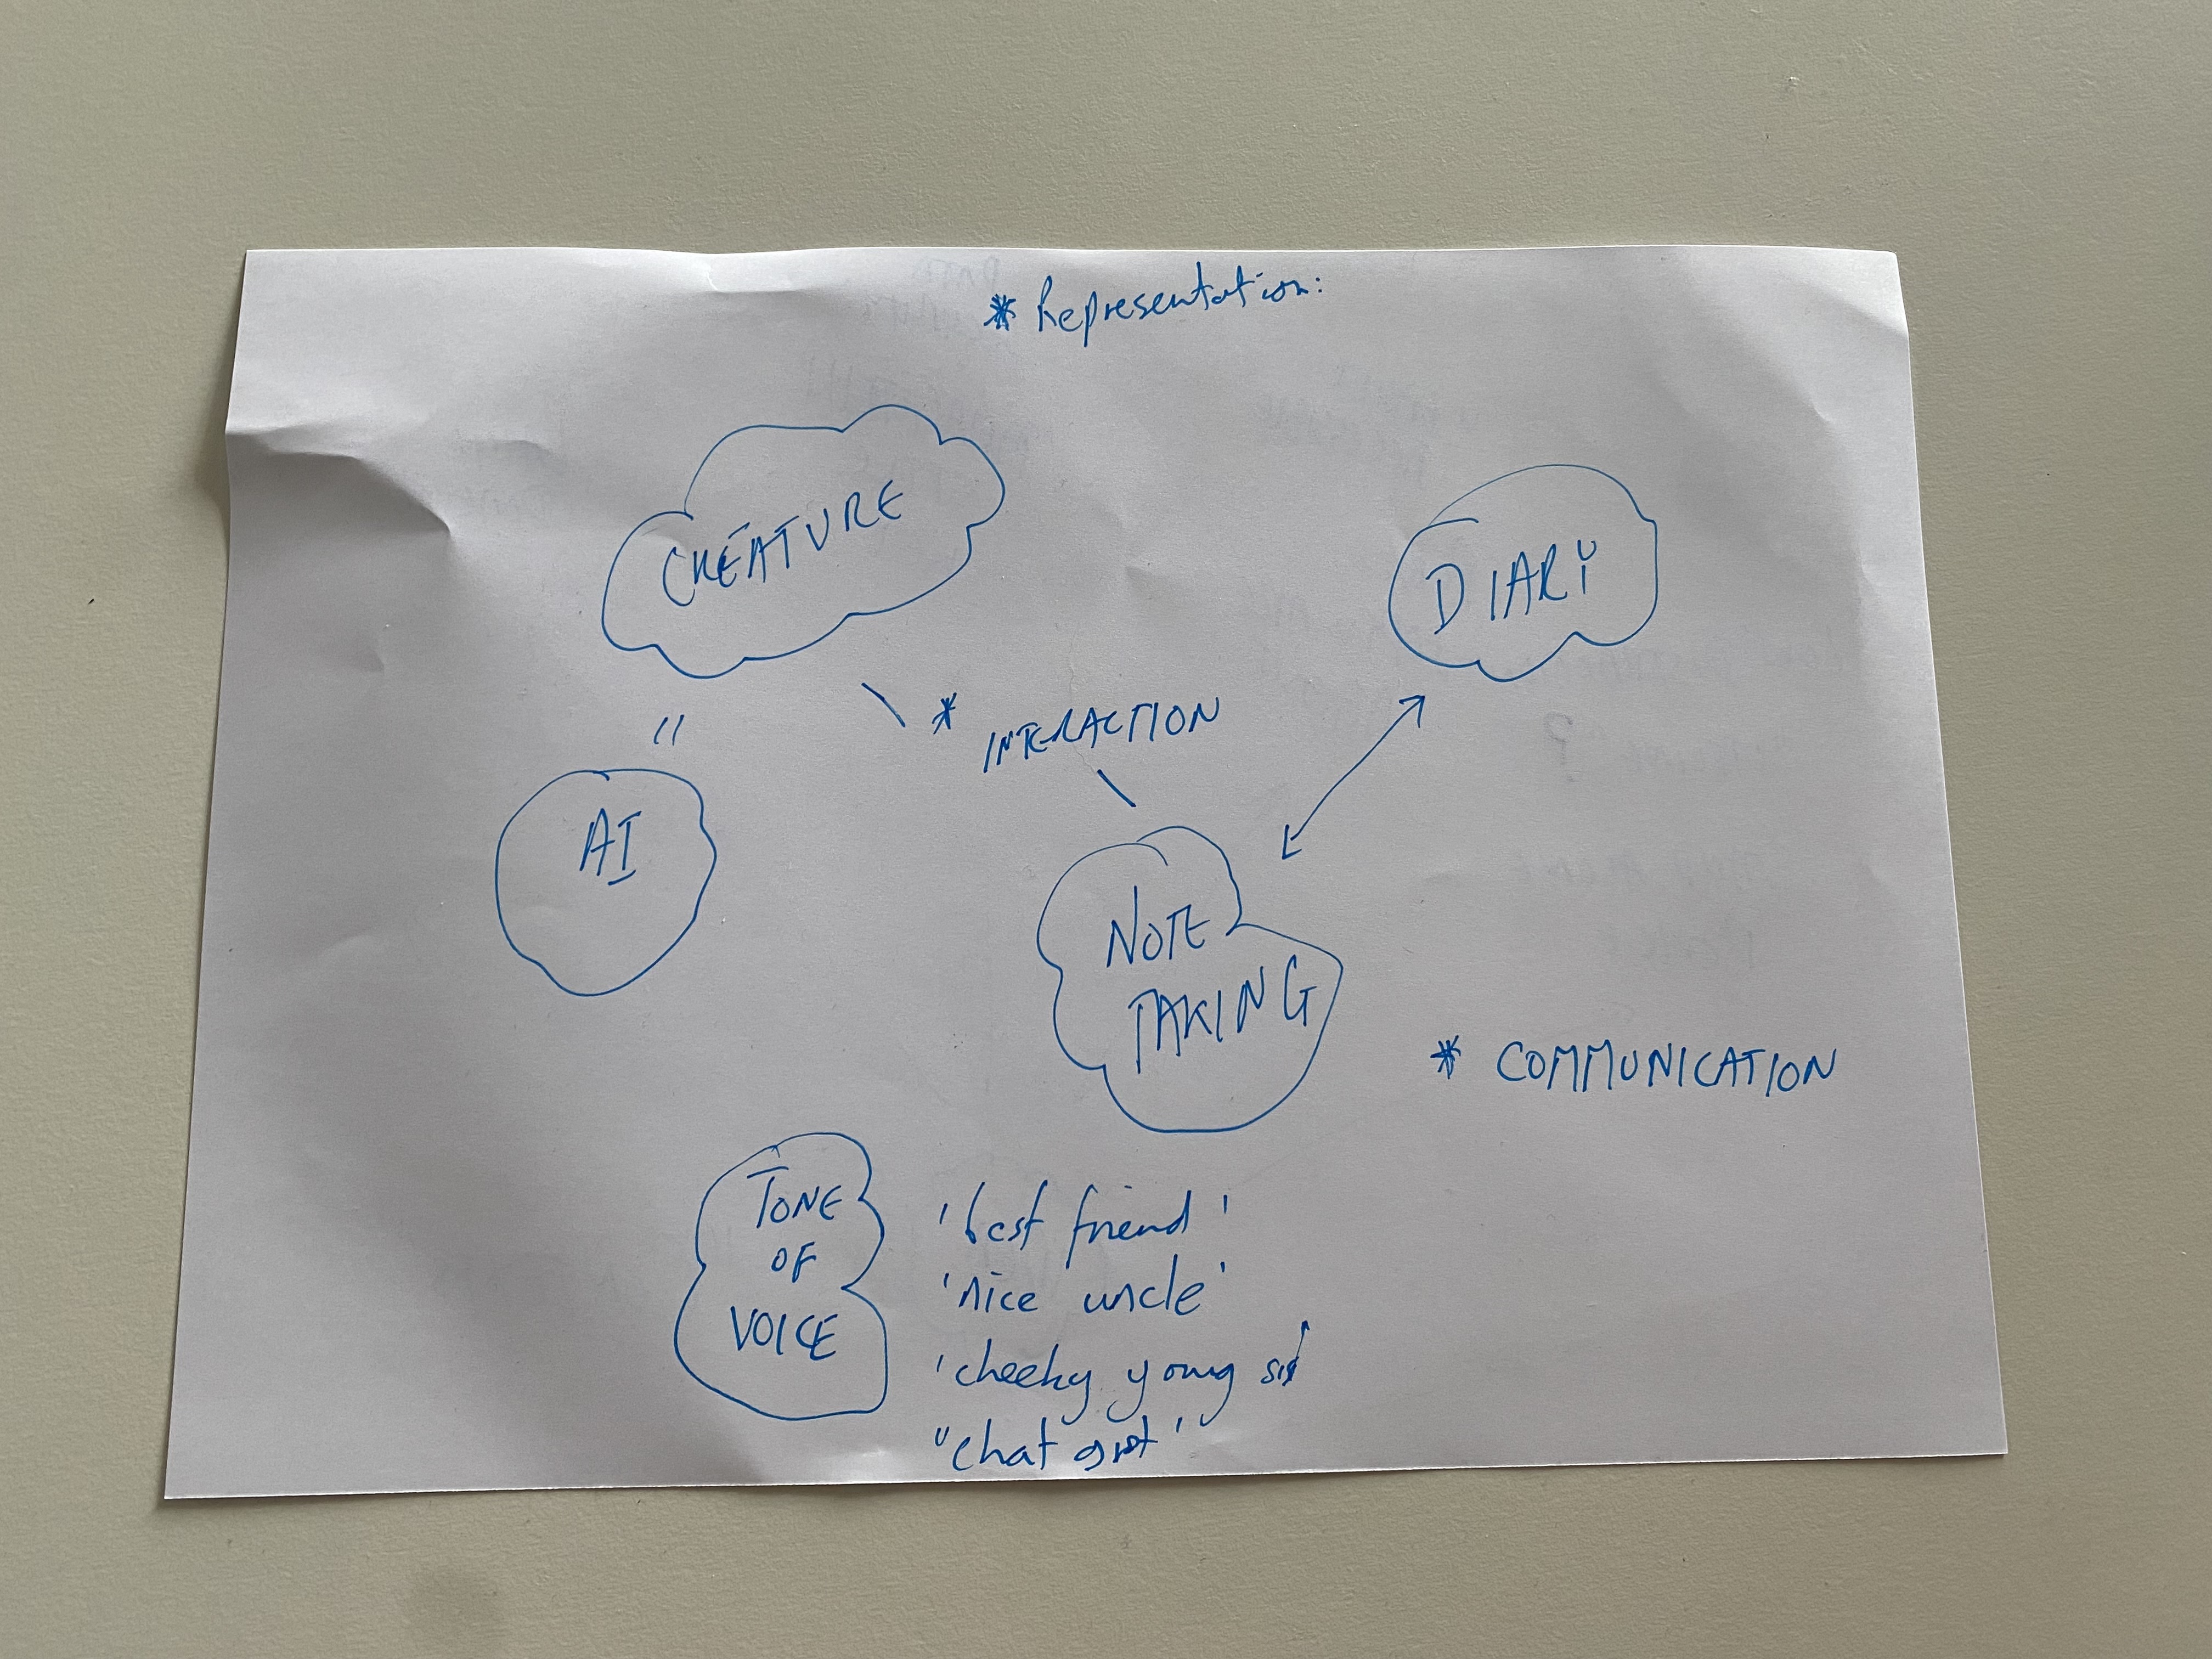 * Representation:
CREATURE
DIARY
"
* INTERACTION
AI
NOTE
TAKING
* COMMUNICATION
TONE
OF
VOICE
'best friend'
'nice uncle'
'cheeky young sis'
"chat gpt'